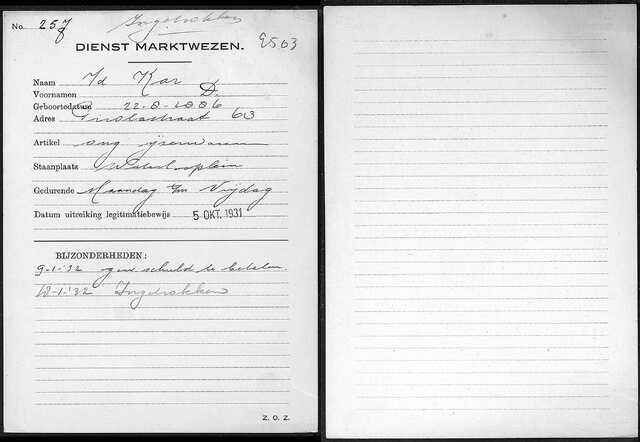 No. 257 Ingetrokken
DIENST MARKTWEZEN. 9503
Naam Vd Kar
Voornamen D.
Geboortedatum 22-8-1886
Adres 63
Artikel ong ijzerwaren
Staanplaats Waterlooplein
Gedurende Maandag t/m Vrijdag
Datum uitreiking legitimatiebewijs 5 OKT. 1931
BIJZONDERHEDEN:
9-1-'32 schuld te betalen.
18-1-'32 Ingetrokken
Z. O. Z.